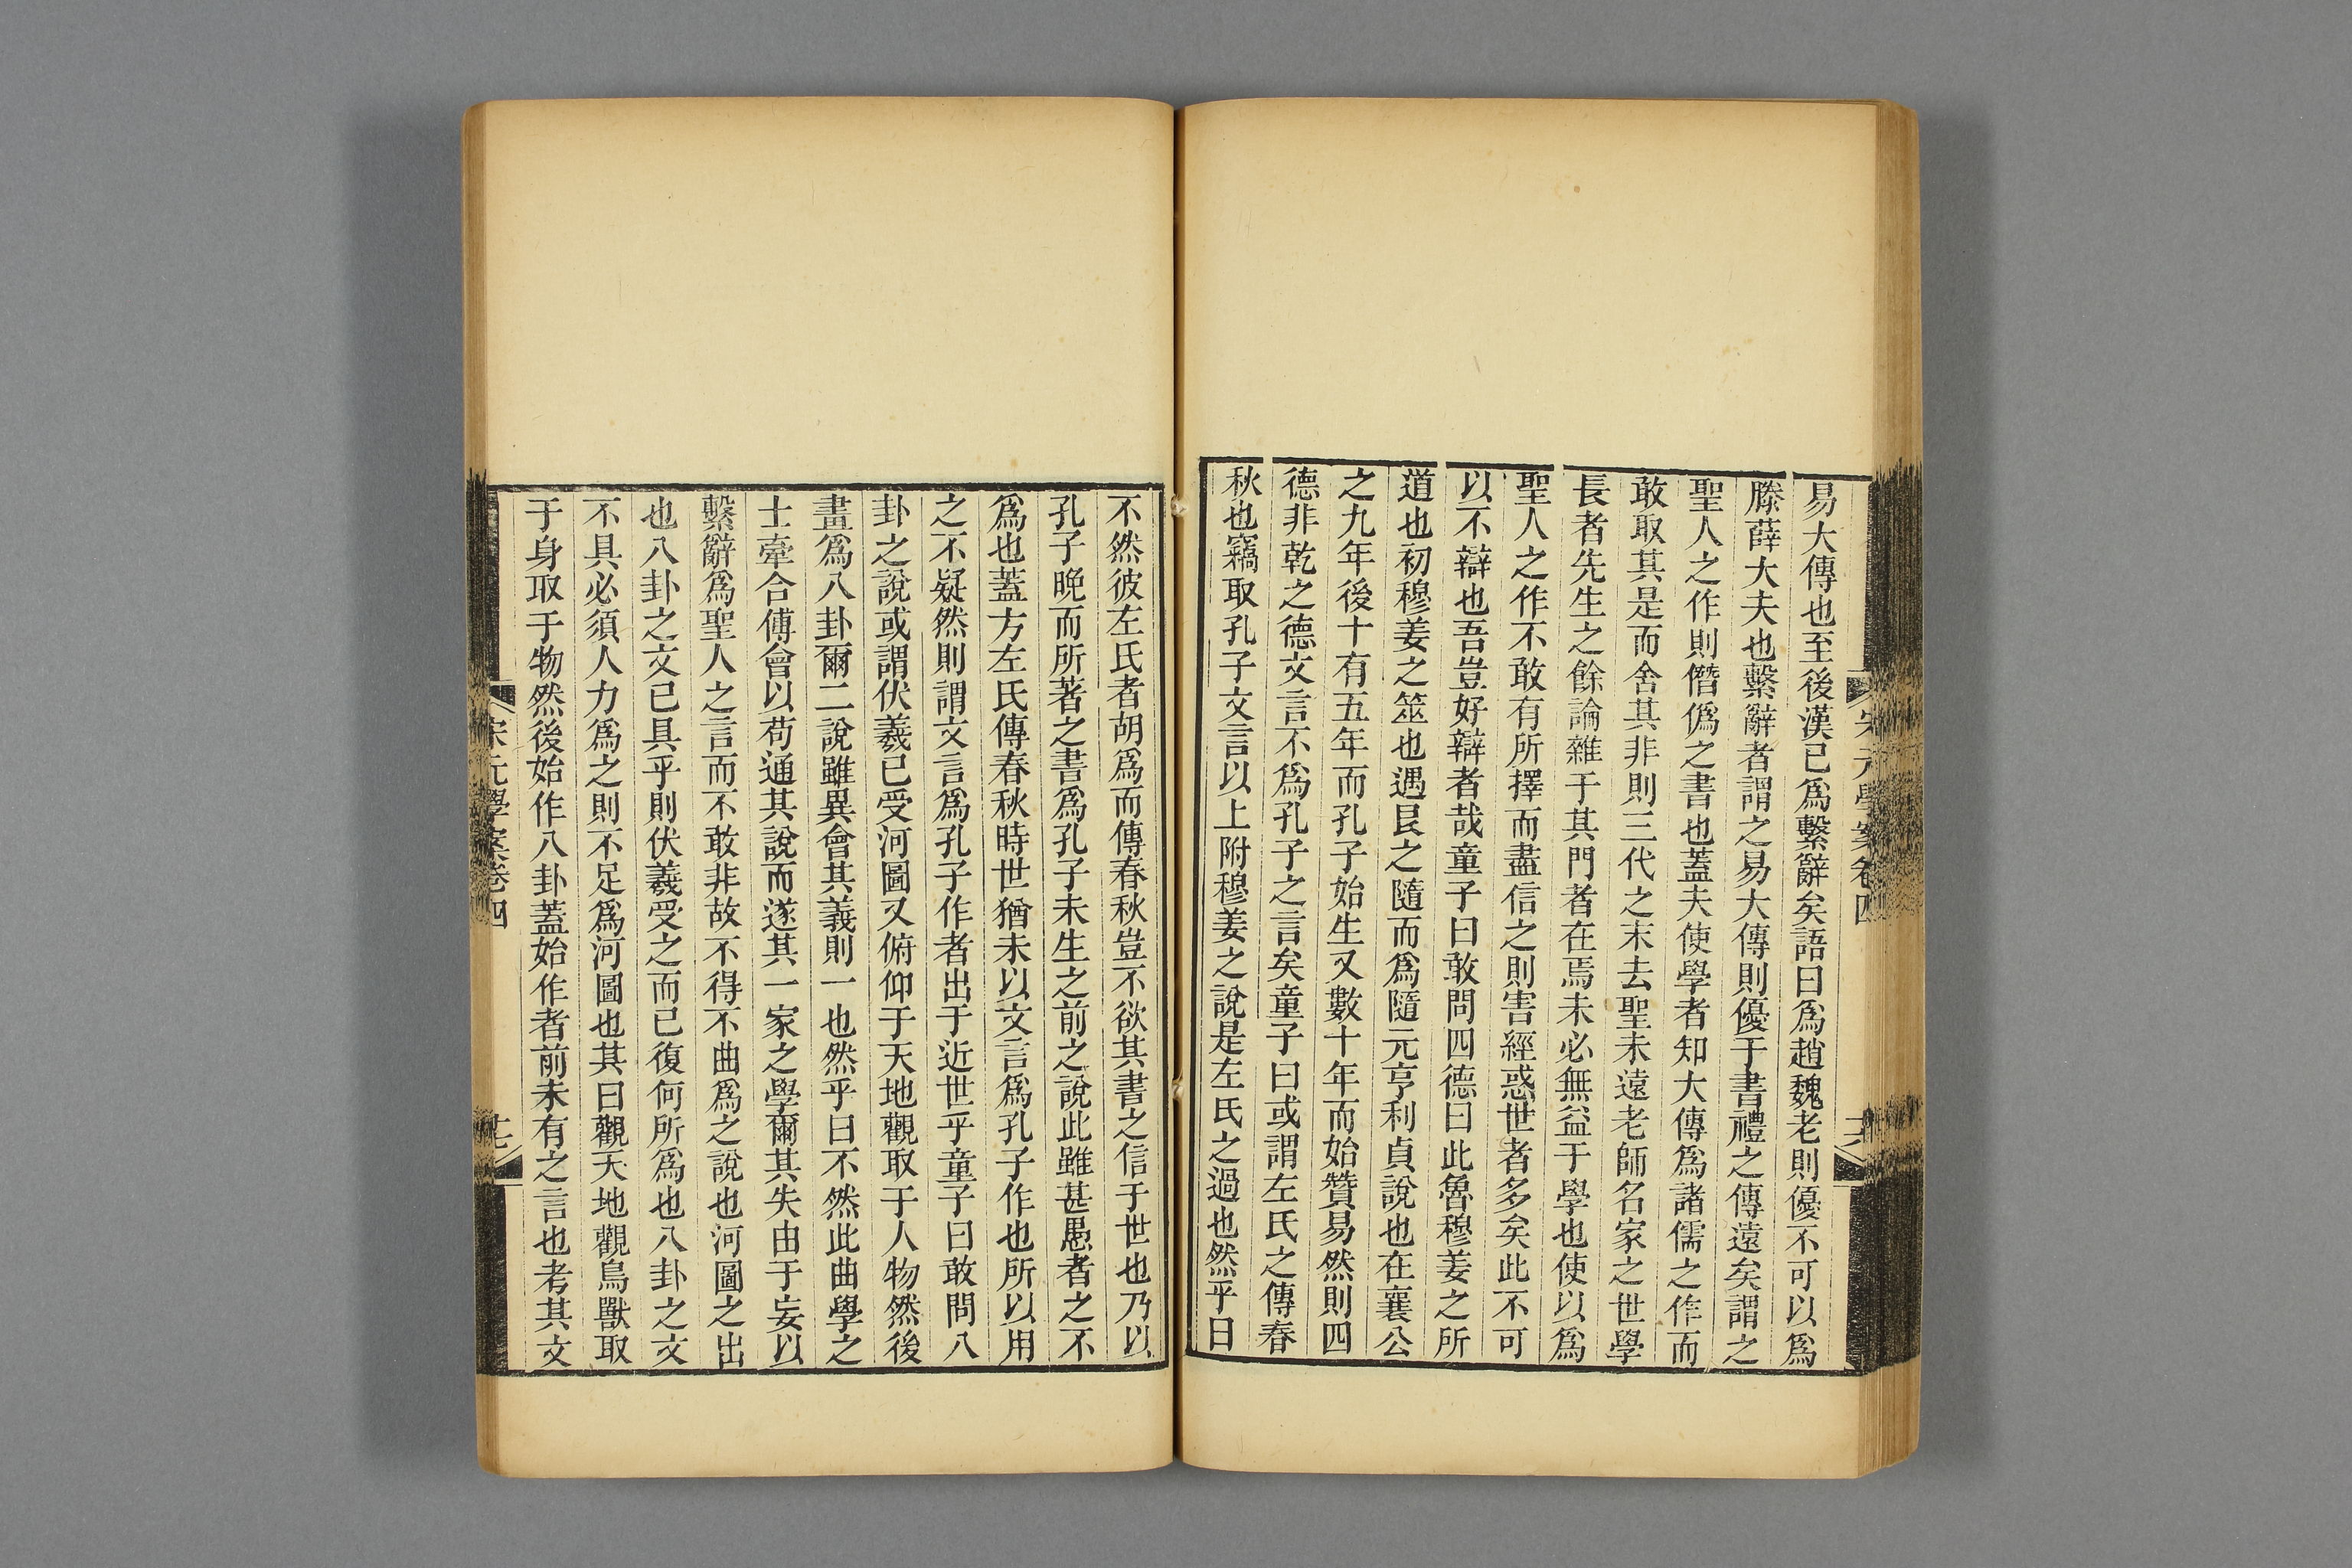 宋元學案卷四
十六
易大傳也至後漢已爲繫辭矣語曰爲趙魏老則優不可以爲
滕薛大夫也繫辭者謂之易大傳則優于書禮之傳遠矣謂之
聖人之作則僭僞之書也蓋夫使學者知大傳爲諸儒之作而
敢取其是而舍其非則三代之末去聖未遠老師名家之世學
長者先生之餘論雜于其門者在焉未必無益于學也使以爲
聖人之作不敢有所擇而盡信之則害經惑世者多矣此不可
以不辯也吾豈好辯者哉童子曰敢問四德曰此魯穆姜之所
道也初穆姜之筮也遇艮之隨而爲隨元亨利貞說也在襄公
之九年後十有五年而孔子始生又數十年而始贊易然則四
德非乾之德文言不爲孔子之言矣童子曰或謂左氏之傳春
秋也竊取孔子文言以上附穆姜之說是左氏之過也然乎曰
不然彼左氏者胡爲而傳春秋豈不欲其書之信于世也乃以
孔子晚而所著之書爲孔子未生之前之說此雖甚愚者之不
爲也蓋方左氏傳春秋時世猶未以文言爲孔子作也所以用
之不疑然則謂文言爲孔子作者出于近世乎童子曰敢問八
卦之說或謂伏羲已受河圖又俯仰于天地觀取于人物然後
畫爲八卦爾二說雖異會其義則一也然乎曰不然此曲學之
士牽合傅會以苟通其說而遂其一家之學爾其失由于妄以
繫辭爲聖人之言而不敢非故不得不曲爲之說也河圖之出
也八卦之文已具乎則伏羲受之而已復何所爲也八卦之文
不具必須人力爲之則不足爲河圖也其曰觀天地觀鳥獸取
于身取于物然後始作八卦蓋始作者前未有之言也考其文
宋元學案卷四
十七